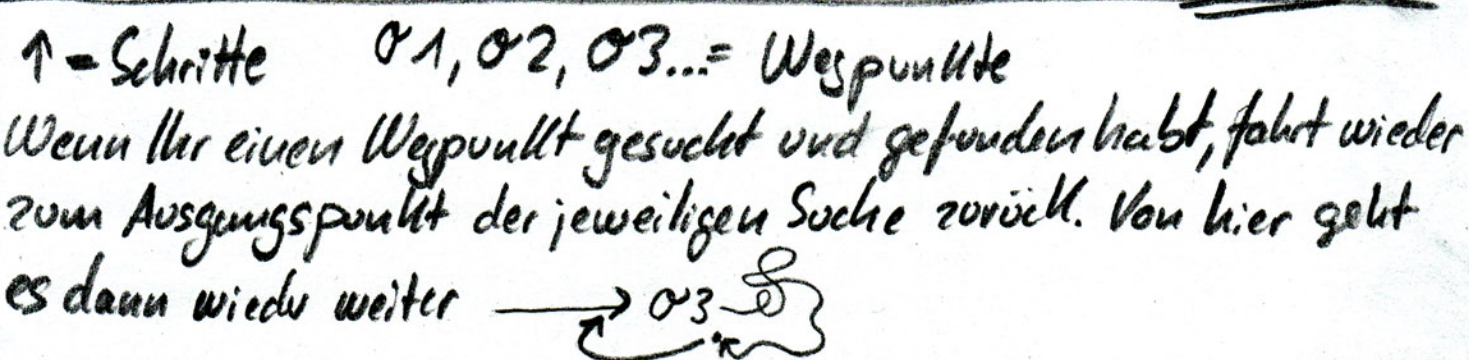 ↑ = Schritte σ1, σ2, σ3...= Wegpunkte
Wenn Ihr einen Wegpunkt gesucht und gefunden habt, fahrt wieder
zum Ausgangspunkt der jeweiligen Suche zurück. Von hier geht
es dann wieder weiter → σ3